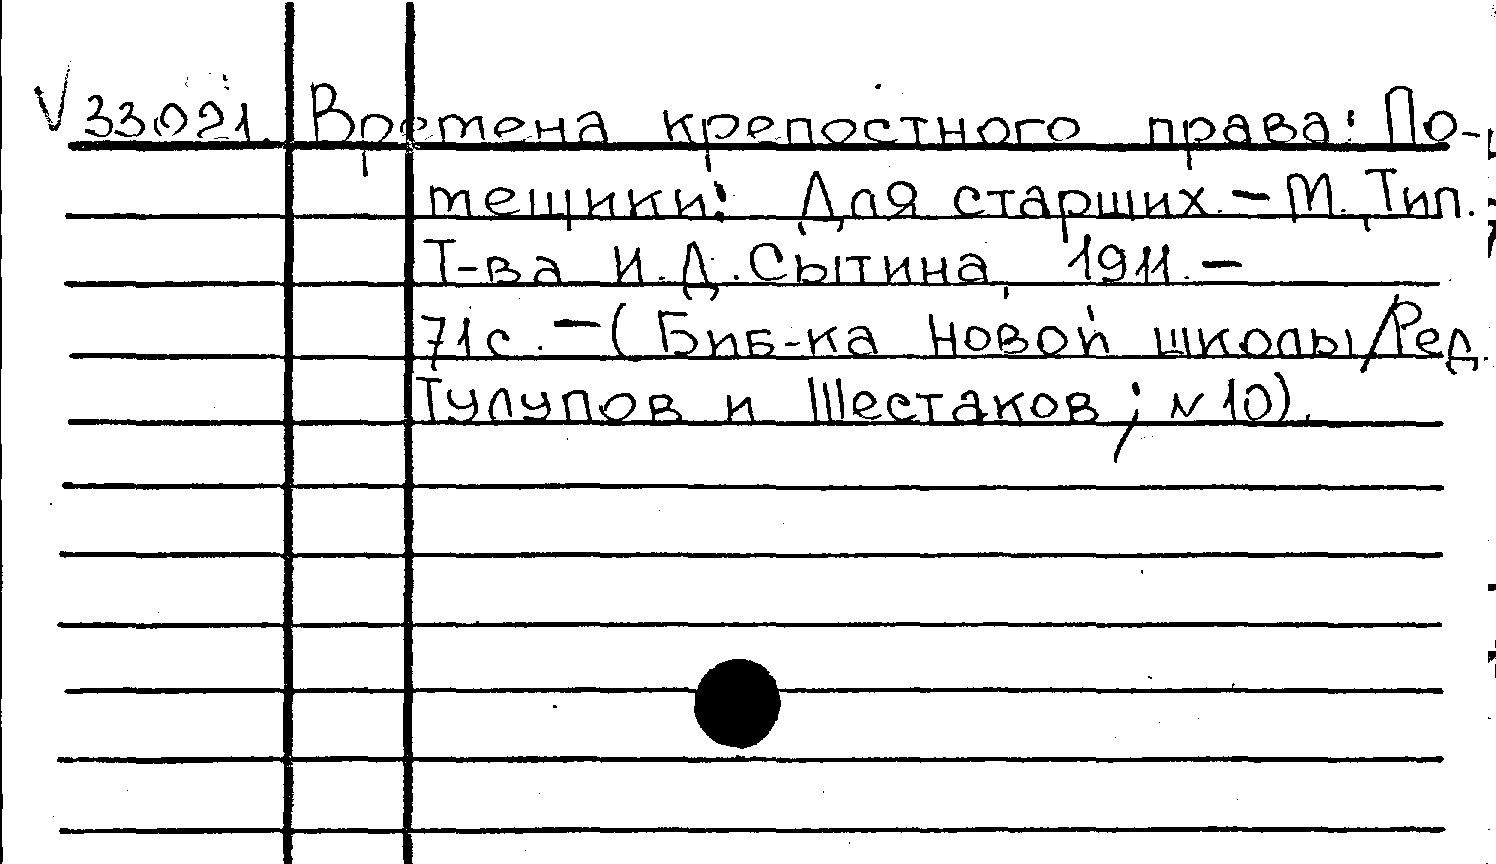 V 33021. Времена крепостного права: По-
мещики: Для старших. – М., Тип.
Т-ва И.Д.Сытина, 1911. –
71с. – (Биб-ка новой школы/Ред.
Тулупов и Шестаков; N10).